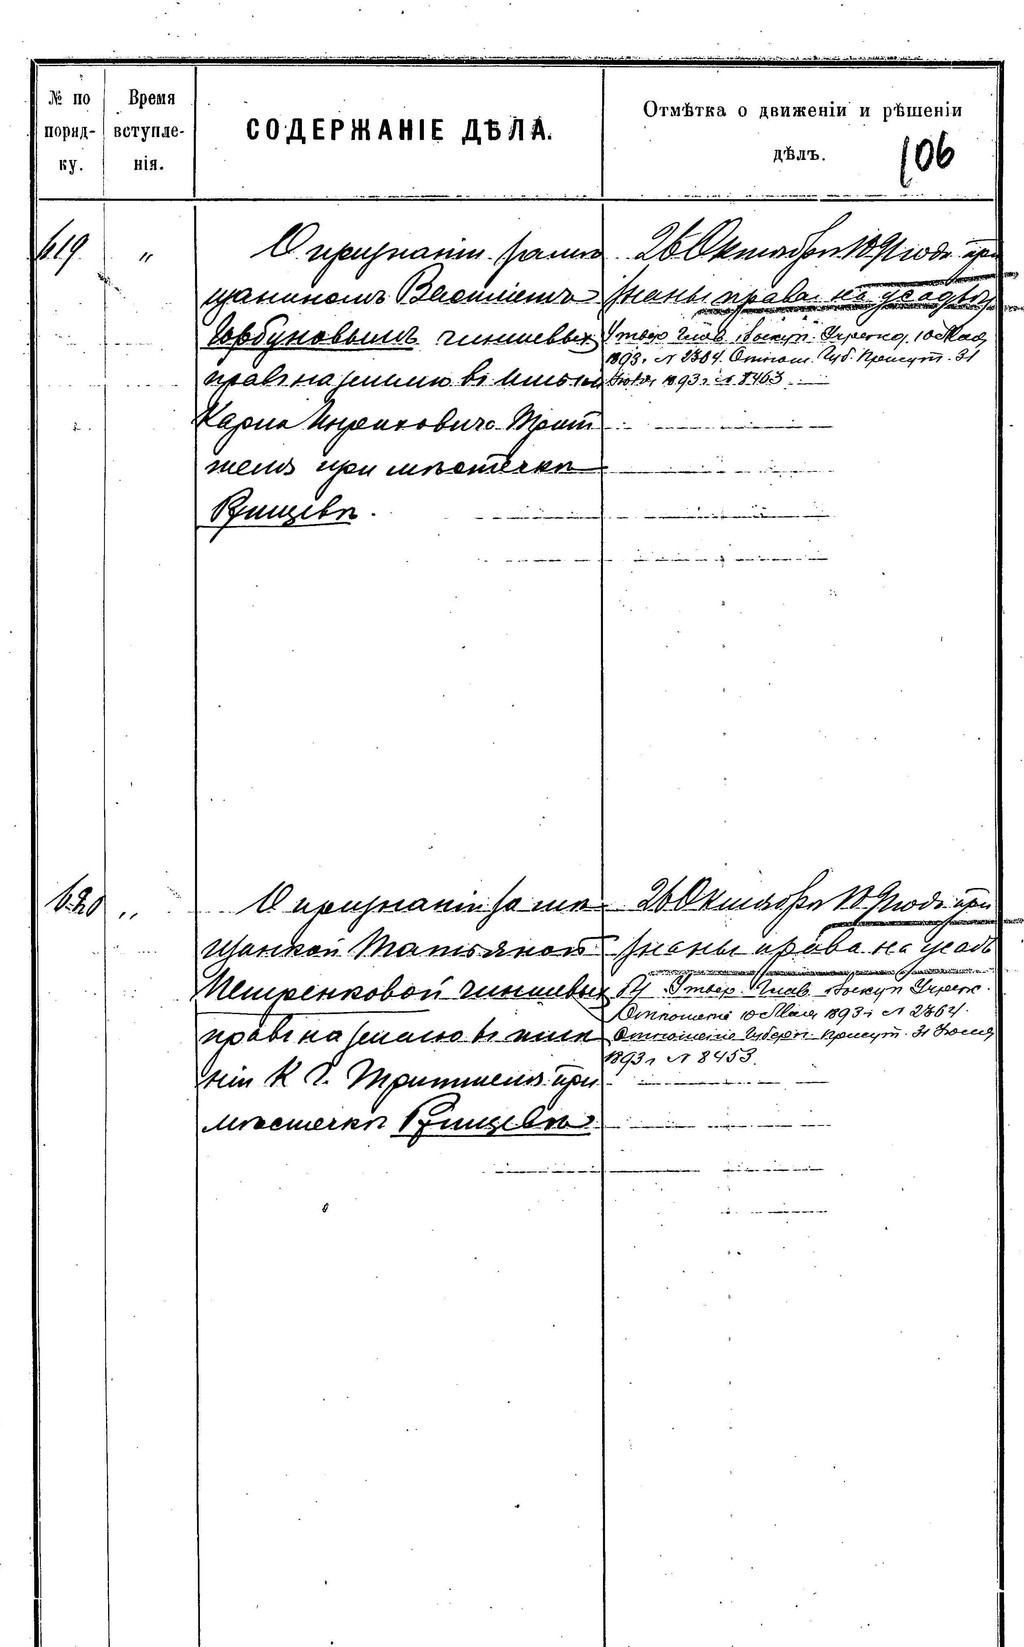 № по порядку.
Время вступленія.
СОДЕРЖАНІЕ ДѢЛА.
Отмѣтка о движеніи и рѣшеніи
дѣлъ.
106
619 " О признаніи за мѣ
щаниномъ Василіемъ
Горбуновымъ чиншевыхъ
правъ на землю въ имѣніи
Карла
при мѣстечкѣ
Ржищевѣ.
26 Октября 1891 года при
знаны права на усадьбу
Утвер. Глав. Выкуп. Учрежд. 10 Мая
1893 г. № 2864. Отнош. Губ. Присут. 31
1893 г. № 8453
620 " О признаніи за мѣ
щанкой Татьяной
Петренковой чиншевыхъ
правъ на землю въ имѣ
ніи К. Г. при
мѣстечкѣ Ржищевѣ.
26 Октября 1891 года при
знаны права на усадь
бу. Утвер. Глав. Выкуп. Учреж.
Отношеніе 10 Мая 1893 г. № 2864.
Отношеніе Губерн. Присут. 31 Іюля
1893 г. № 8453.